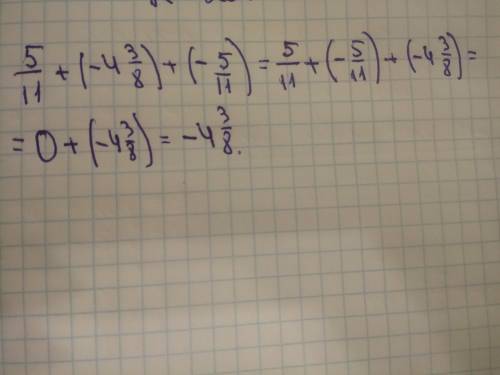 5/11 + (-4 3/8) + (-5/11) = 5/11 + (-5/11) + (-4 3/8) =
= 0 + (-4 3/8) = -4 3/8.